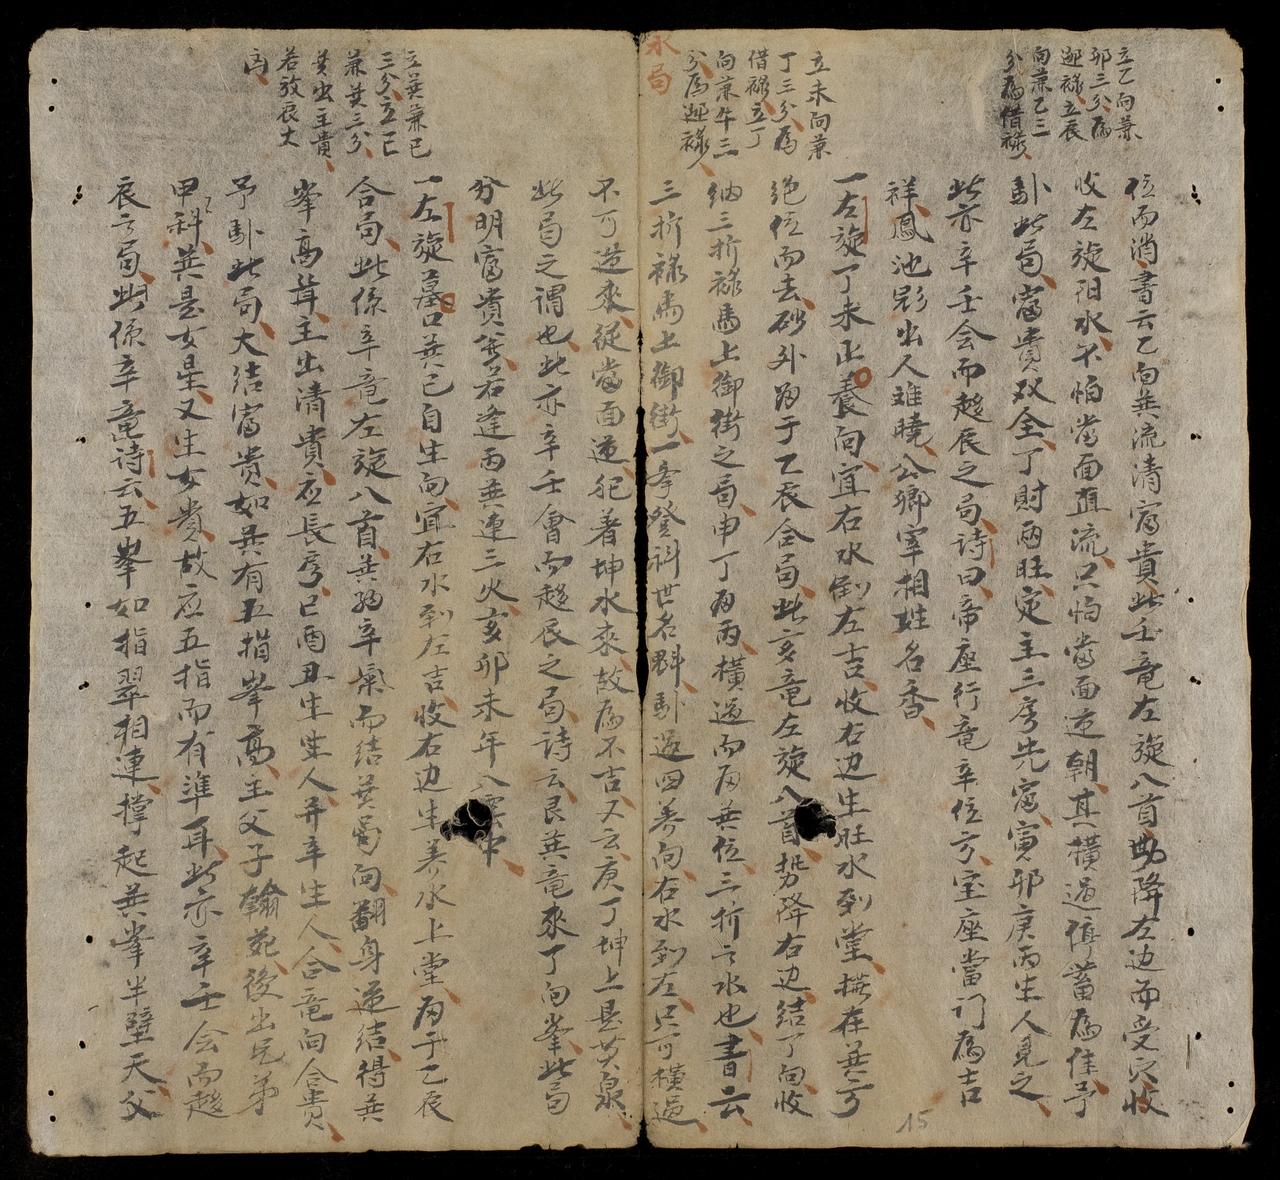 立乙向兼
卯三分為
迎祿立辰
向兼乙三
分為借祿
位而消書云乙向巽流清富貴此壬竜左旋八首曲降左边而受穴收
收左旋阳水不怕當面直流只怕當面逆朝其橫過停蓄為佳予
卧此局富貴双全丁財兩旺定主三房先富寅卯庚丙生人見之
此亦辛壬会而趍辰之局詩曰帝座行竜辛位方室座當门為吉
祥鳳池影出人难曉公卿宰相姓名香
立未向兼
丁三分為
借祿立丁
向兼午三
分為迎祿
一左旋丁未正養向宜右水倒左吉收右边生旺水到堂搃在巽方
絕位而去砂外好于乙辰合局此亥竜左旋八首势降右边結丁向收
納三折祿馬上御街之局申丁丙橫過而启巽位三折之水也書云
三折祿馬上御街一舉登科世名魁卧返四养向右水到左只可橫過
水局
不可造來從當面逆犯着坤水來故為不吉又云庚丁坤上是黃泉
此局之謂也此亦辛壬會而趍辰之局詩云艮巽竜來丁向峯此局
分明富貴若逢丙巽連三火亥卯未年八雲中
立巽兼巳
三分立巳
兼巽三分
巽出主貴
若放辰大
凶
一左旋墓口巽巳自生向宜右水到左吉收右边生养水上堂启于乙辰
合局此係辛竜左旋八首巽好辛氣而結巽局向翻身逆結得巽
峯高聳主出清貴应長房巳酉丑生生人并辛生人合竜向合貴
予卧此局大結富貴如巽有五指峯高主父子翰苑後出兄弟
甲科巽是女星又生女貴故应五指而有準耳此亦辛壬会而趍
辰之局此係辛竜詩云五峯如指翠相連撐起巽峯半壁天父
15